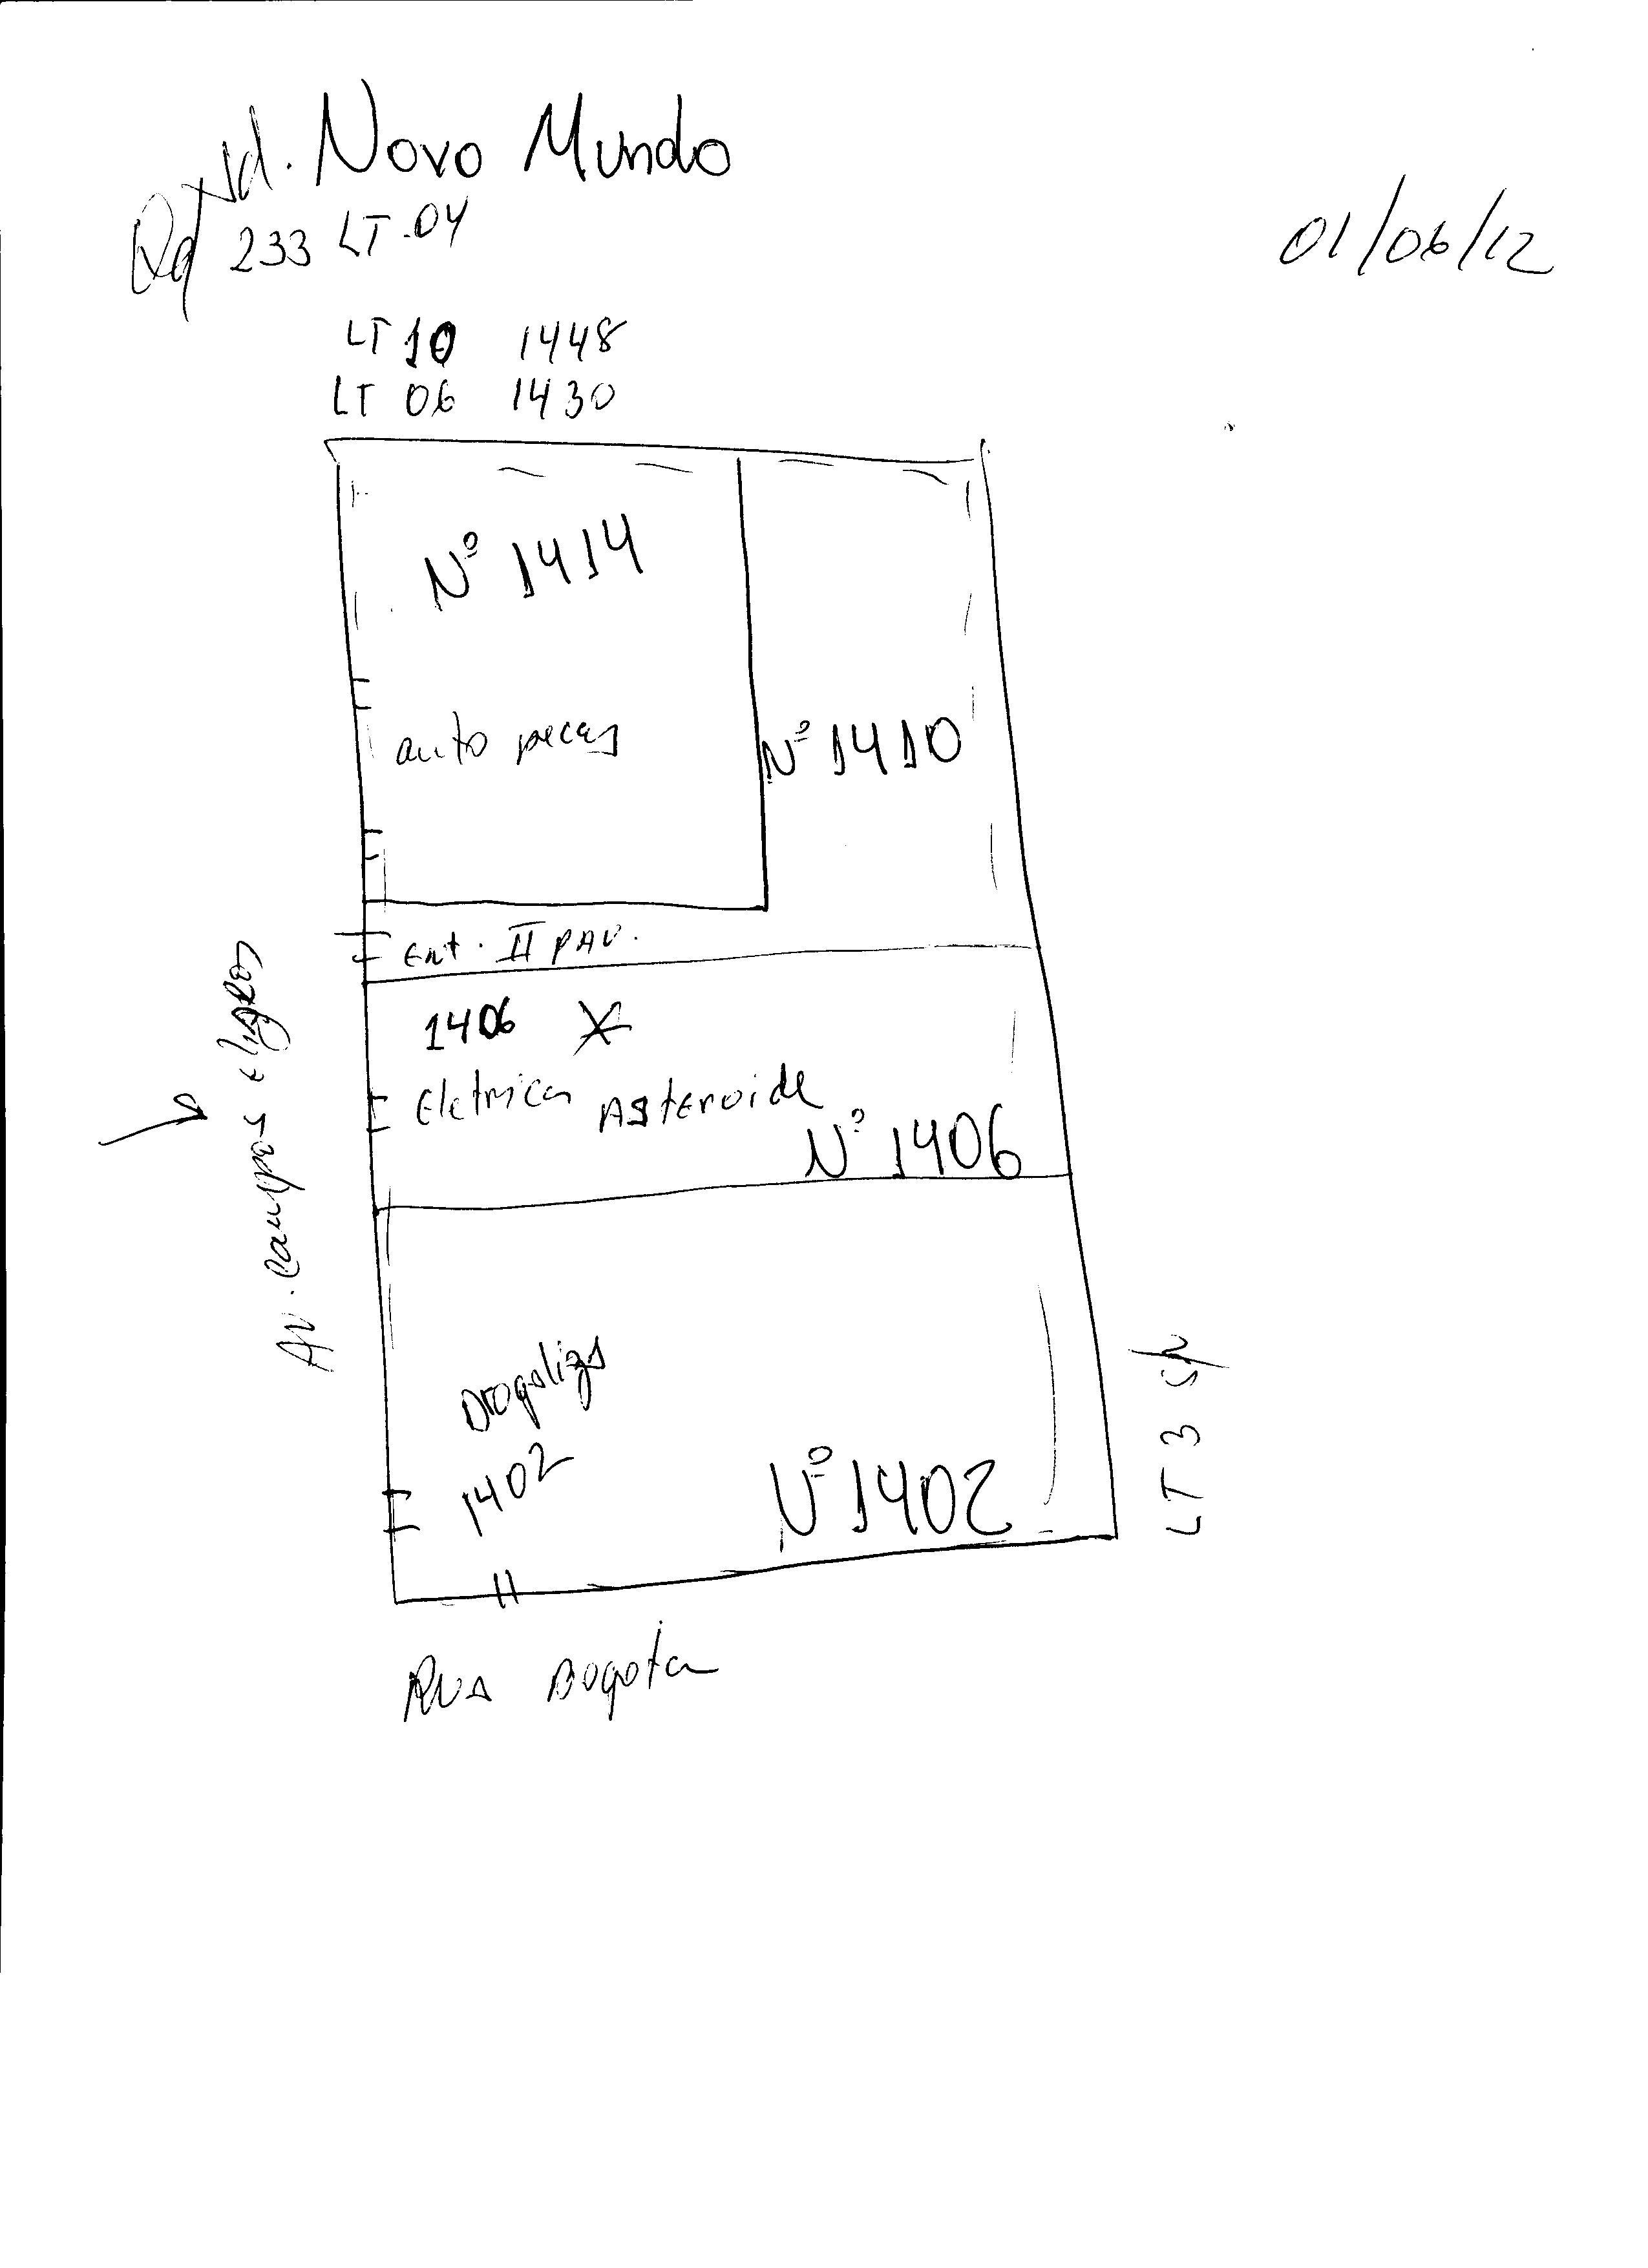 Jd. Novo Mundo
Qd 233 LT-04
01/06/12
LT 10 1448
LT 06 1430
Nº 1414
auto pecas
Nº 1410
Ent. II PAV.
1406
Eletrica Asteroide
Nº 1406
Av. Campos Eliseos
Drogaliza
1402
Nº 1402
LT 3 S/N
Rua Bogota